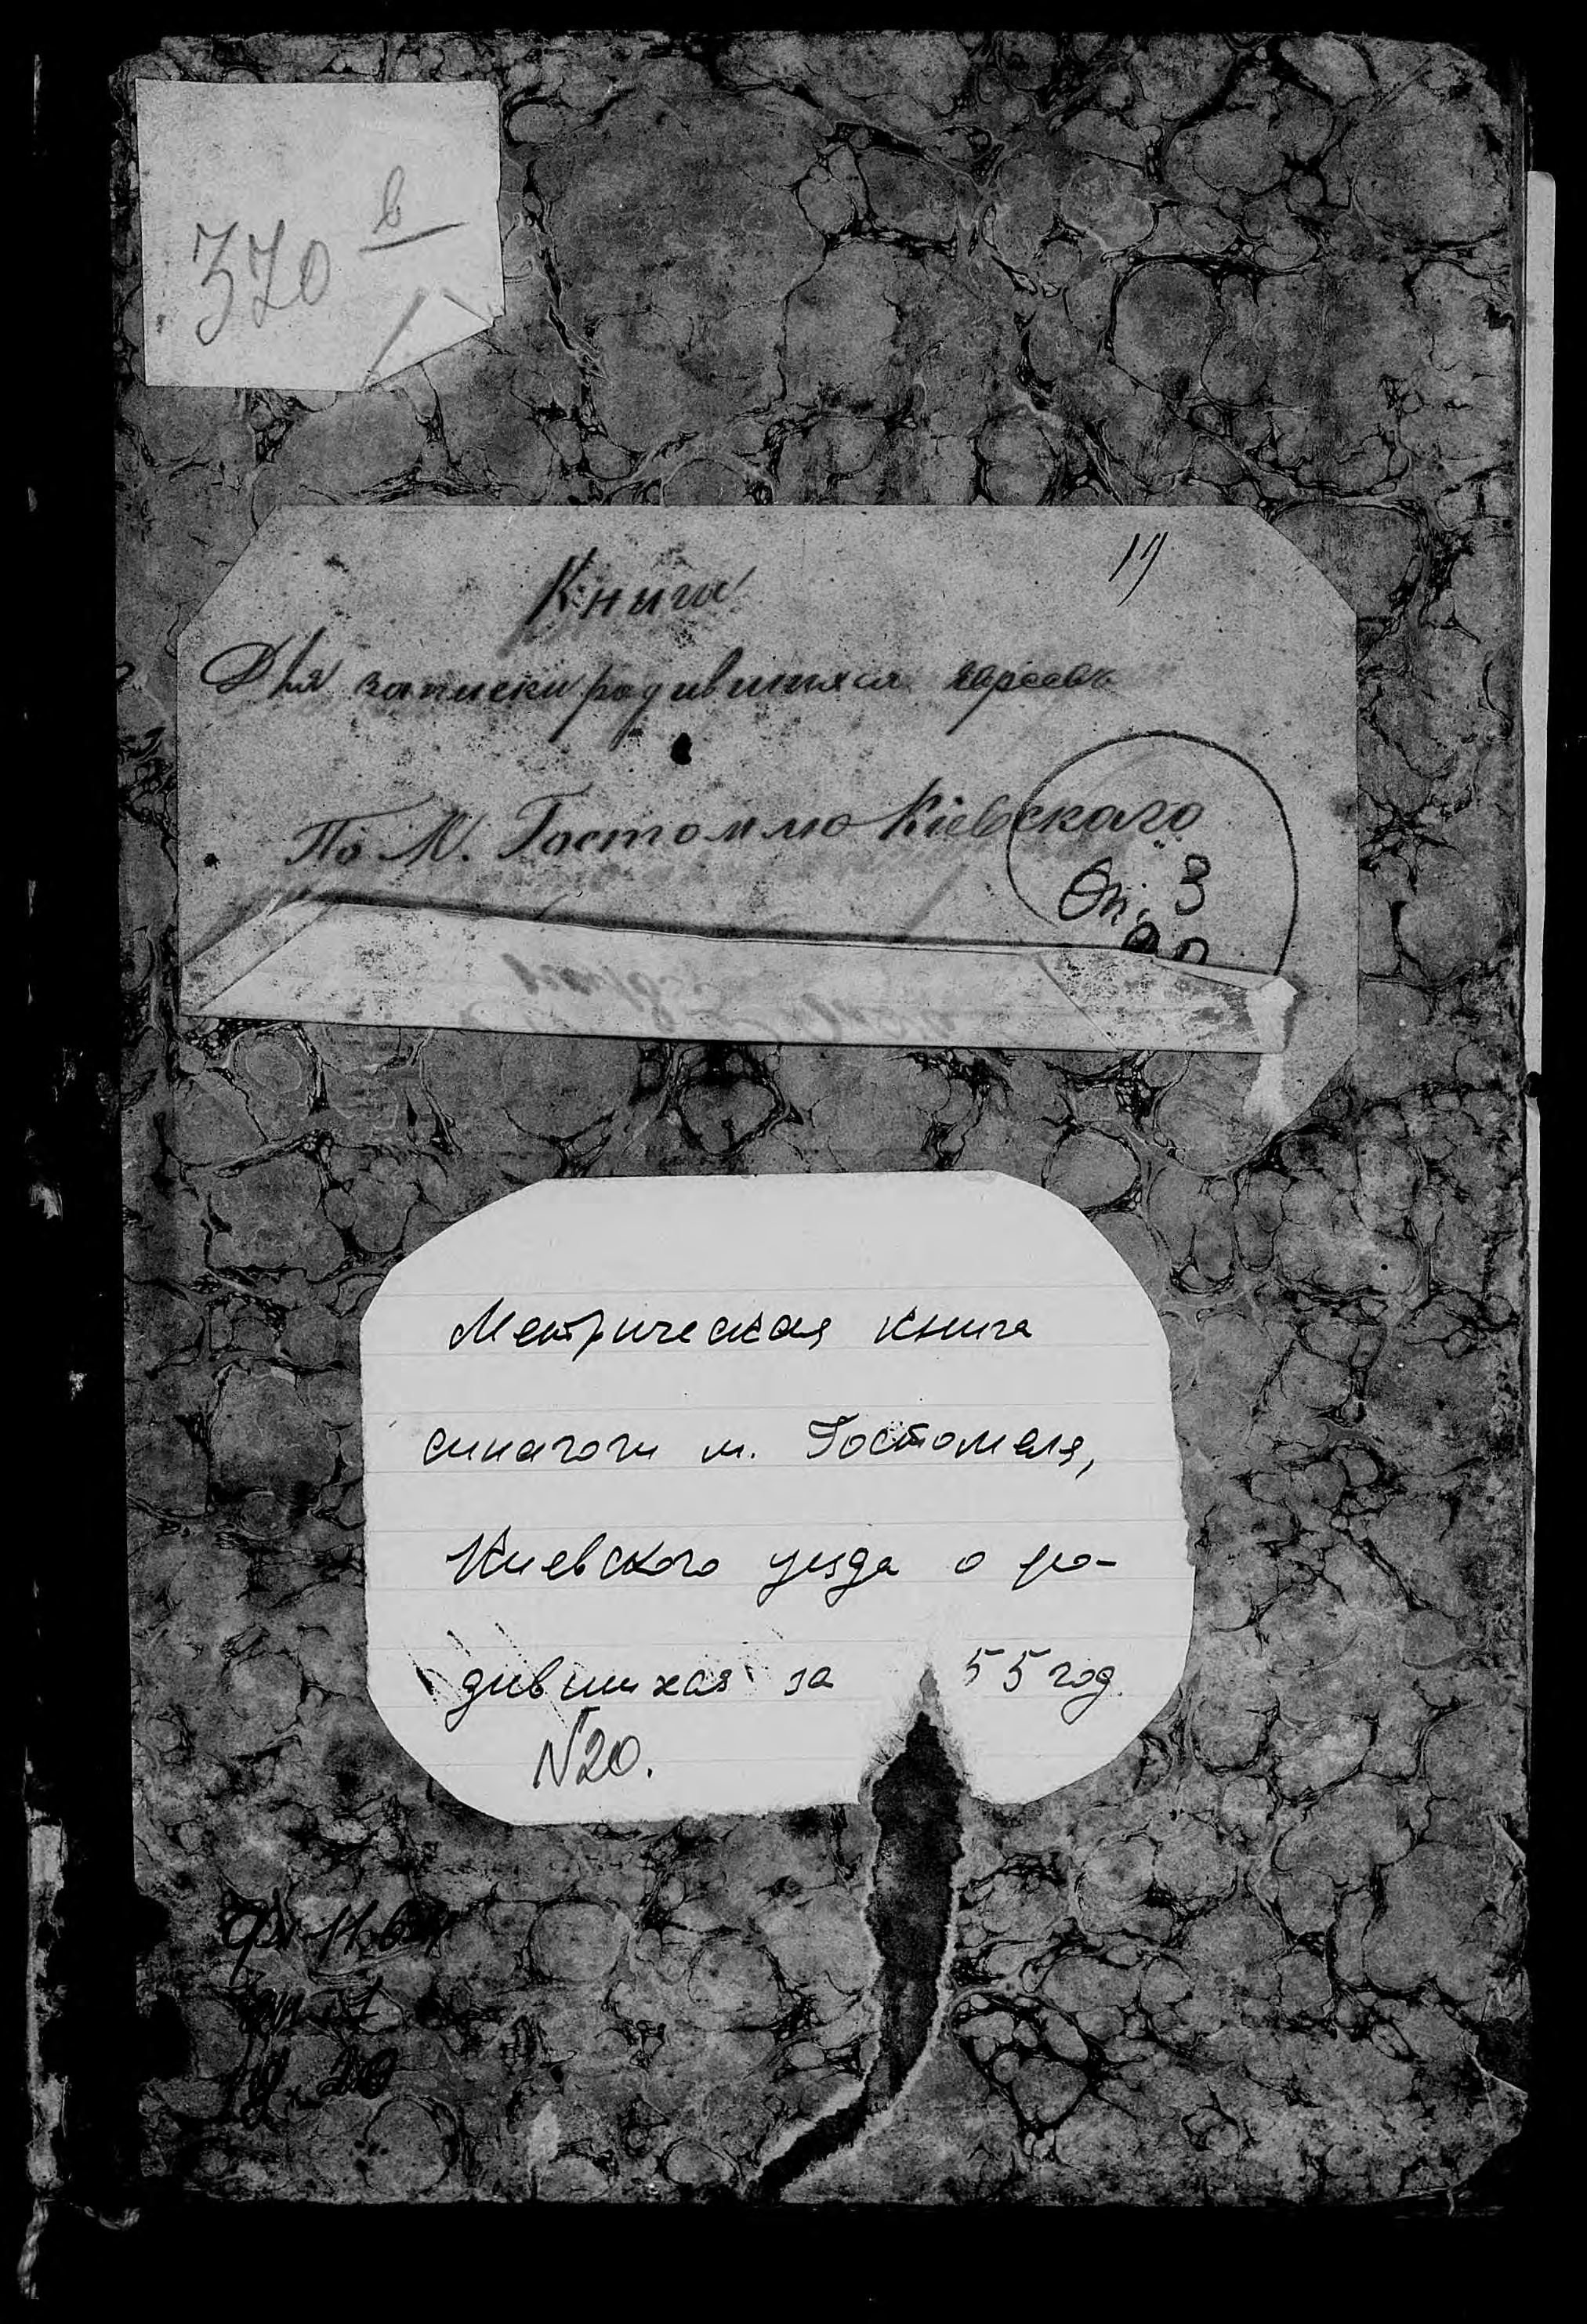 370 в
19
Книга
Для записки родившихся евреевъ
По М. Гостомлю Кіевскаго
Оп. 3
Метрическая книга
синагоги м. Гостомеля,
Киевского уезда о ро-
дившихся за 55 год.
N20.